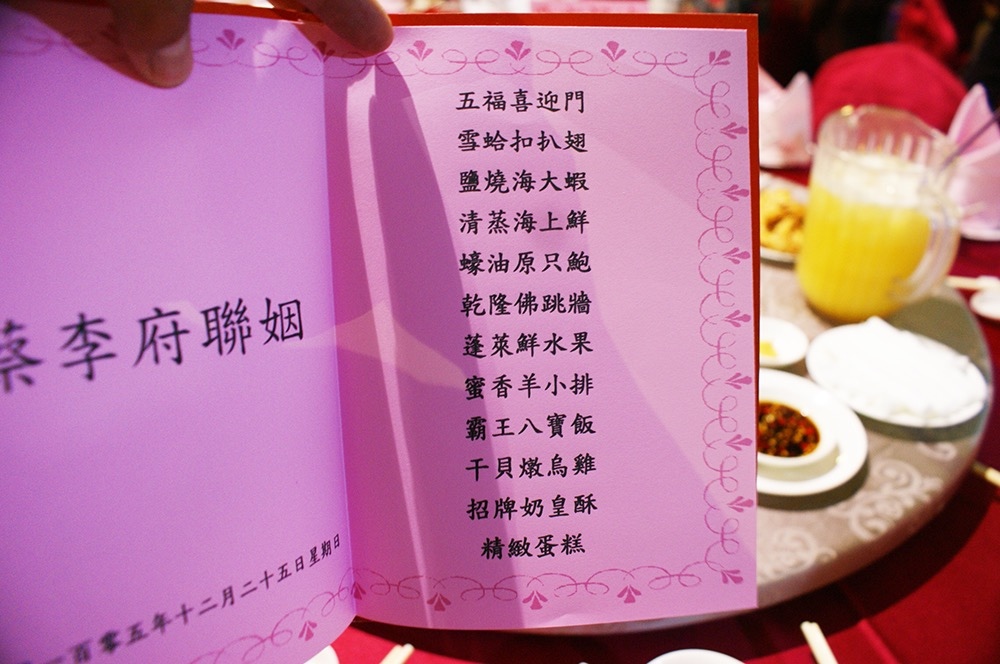 蔡李府聯姻
一百零五年十二月二十五日星期日
五福喜迎門
雪蛤扣扒翅
鹽燒海大蝦
清蒸海上鮮
蠔油原只鮑
乾隆佛跳牆
蓬萊鮮水果
蜜香羊小排
霸王八寶飯
干貝燉烏雞
招牌奶皇酥
精緻蛋糕